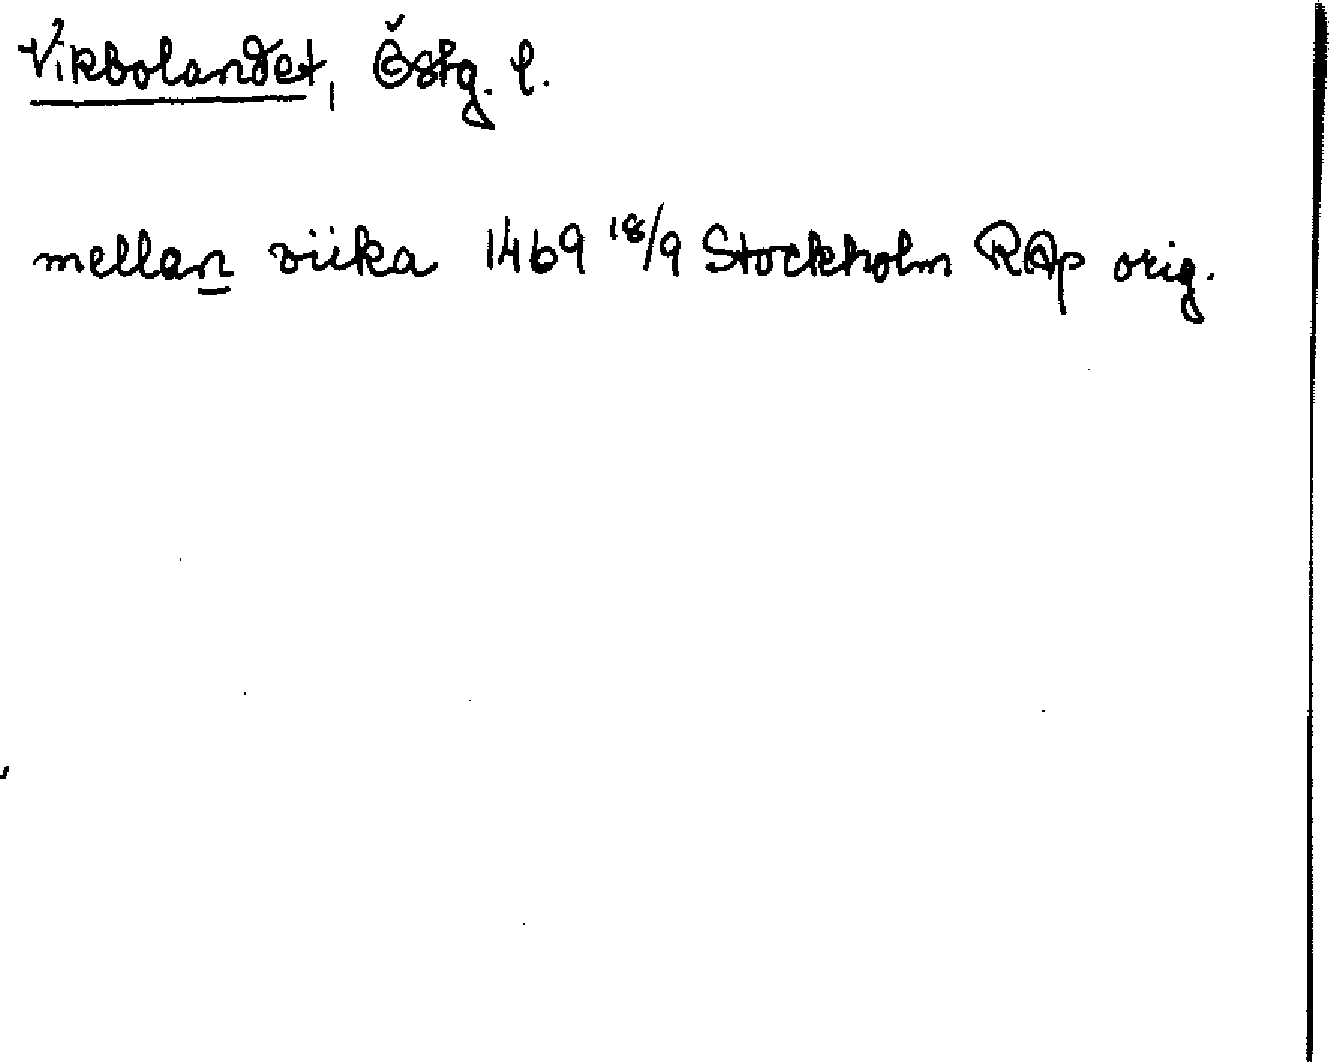 Vikbolandet, Östg. l.
mellan viika 1469 18/9 Stockholm RAp orig.